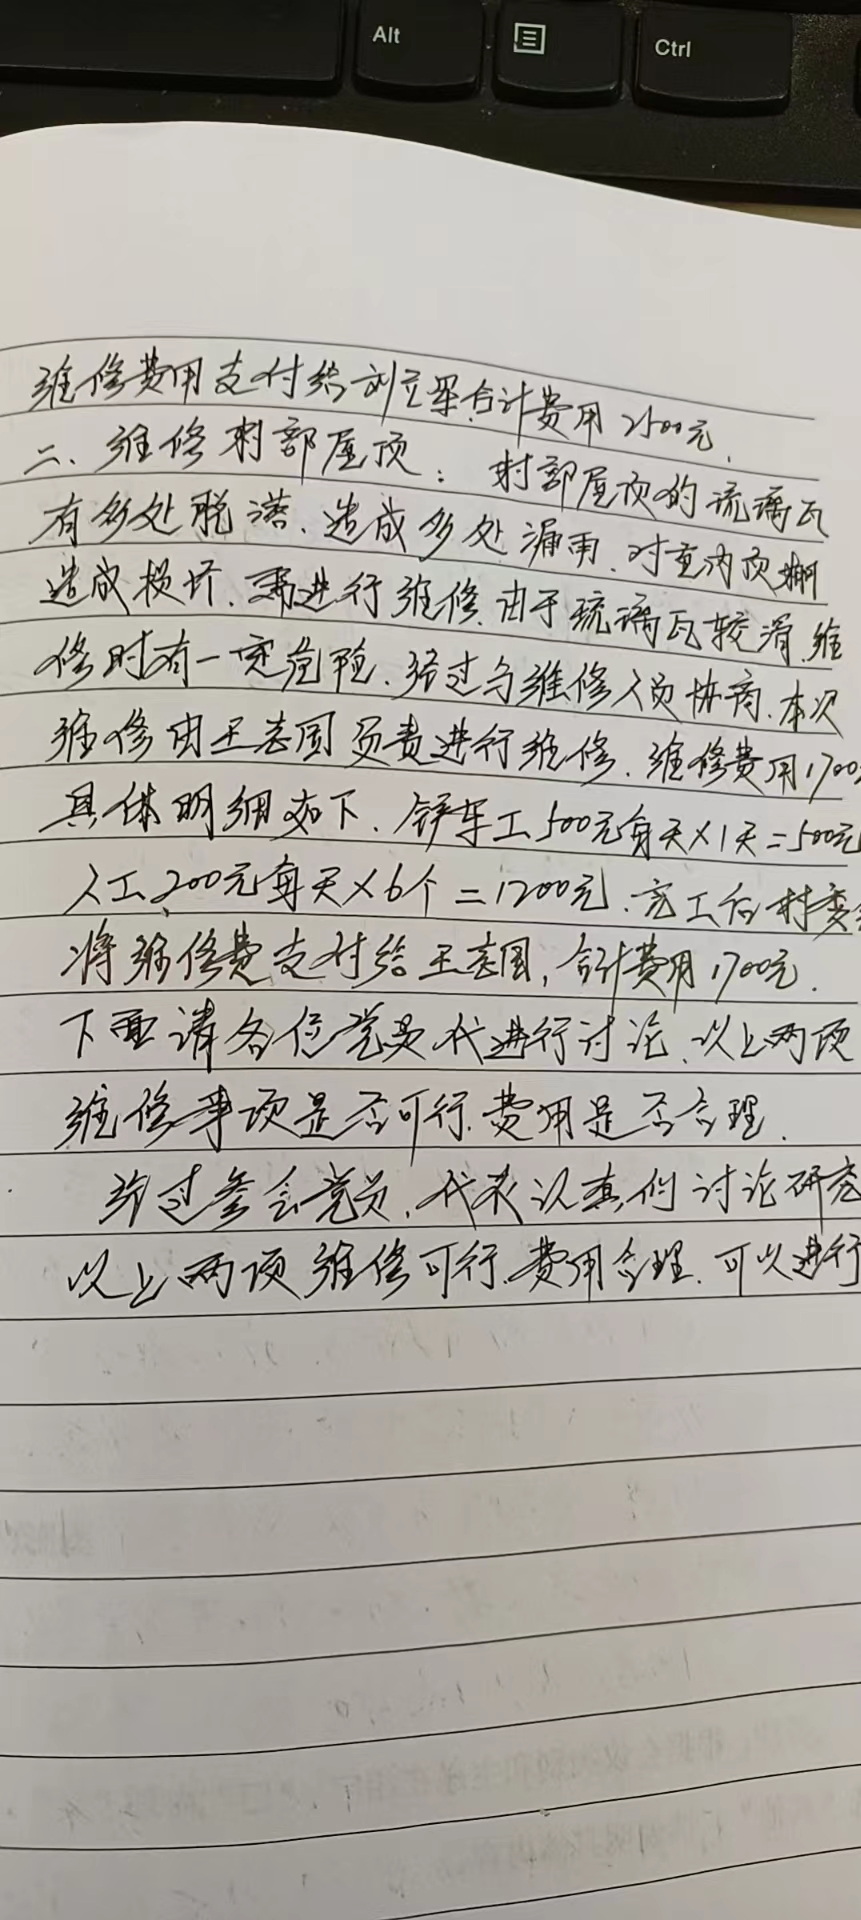 Alt
Ctrl
维修费用支付给刘立军合计费用2500元.
二、维修村部屋顶: 村部屋顶的琉璃瓦
有多处脱落、造成多处漏雨.对室内顶棚
造成损坏.需进行维修.由于琉璃瓦较滑.维
修时有一定危险.经过与维修人员协商.本次
维修由王志国负责进行维修.维修费用1700
具体明细如下.铲车工500元每天×1天=500元
人工200元每天×6个=1200元.完工后村委
将维修费支付给王志国,合计费用1700元.
下面请各位党员代进行讨论、以上两项
维修事项是否可行.费用是否合理.
经过参会党员,代表认真的讨论研究
以上两项维修可行.费用合理.可以进行